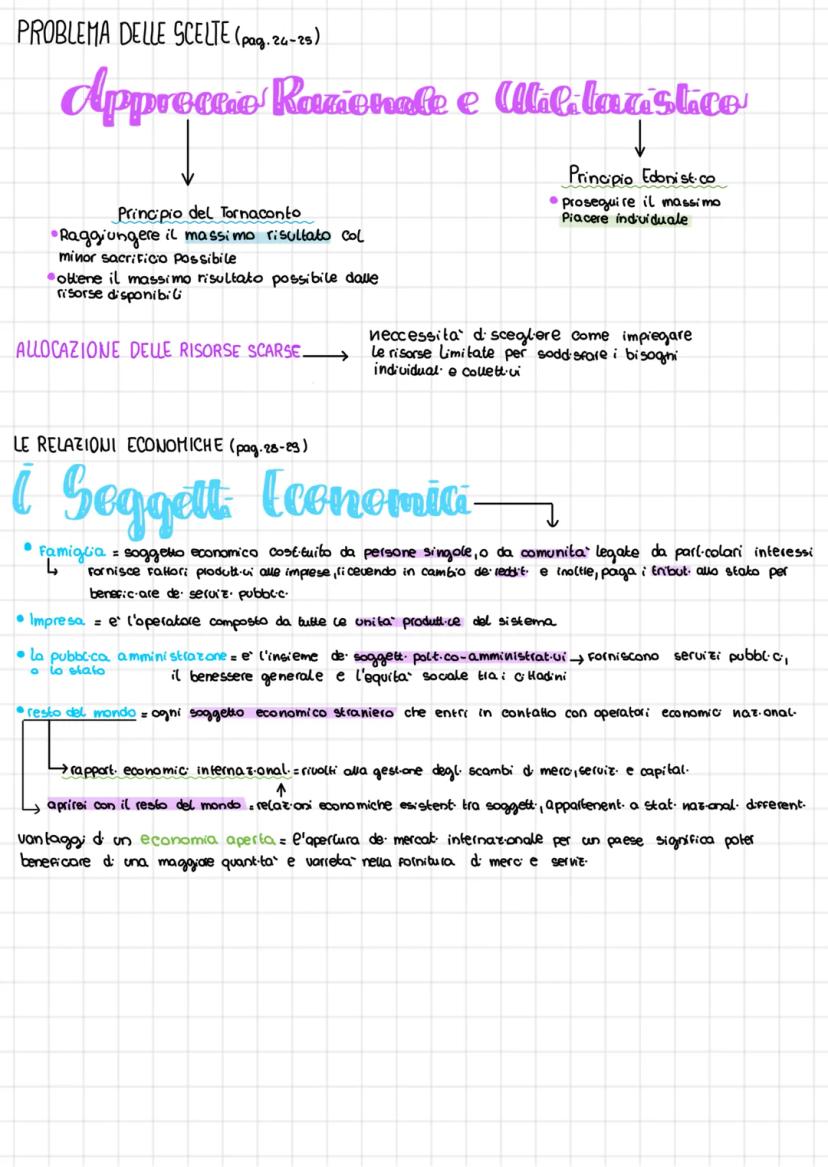 PROBLEMA DELLE SCELTE (pag. 24-25)
Approccio Razionale e Utilitaristico
Principio Edonistico
• proseguire il massimo
Piacere individuale
Principio del Tornaconto
• Raggiungere il massimo risultato col
minor sacrificio possibile
• ottiene il massimo risultato possibile dalle
risorse disponibili
ALLOCAZIONE DELLE RISORSE SCARSE → neccessita' di scegliere come impiegare
le risorse limitate per soddisfare i bisogni
individuali e collettivi
LE RELAZIONI ECONOMICHE (pag. 28-29)
i Soggetti Economici
• Famiglia = soggetto economico costituito da persone singole, o da comunita' legate da particolari interessi
fornisce fattori produttivi alle imprese, ricevendo in cambio dei redditi e inoltre, paga i tributi allo stato per
beneficiare dei servizi pubblici
• Impresa = e' l'operatore composto da tutte le unita' produttice del sistema
• la pubblica amministrazione = e' l'insieme dei soggetti politico-amministrativi → forniscono servizi pubblici,
o lo stato il benessere generale e l'equita' sociale tra i cittadini
• resto del mondo = ogni soggetto economico straniero che entri in contatto con operatori economici nazionali
→ rapporti economici internazionali = rivolti alla gestione degli scambi di merci, servizi e capitali
→ aprirsi con il resto del mondo = relazioni economiche esistenti tra soggetti, appartenenti a stati nazionali differenti
vantaggi di un economia aperta = l'apertura dei mercati internazionale per un paese significa poter
beneficare di una maggiore quantita' e varieta' nella fornitura di merci e servizi